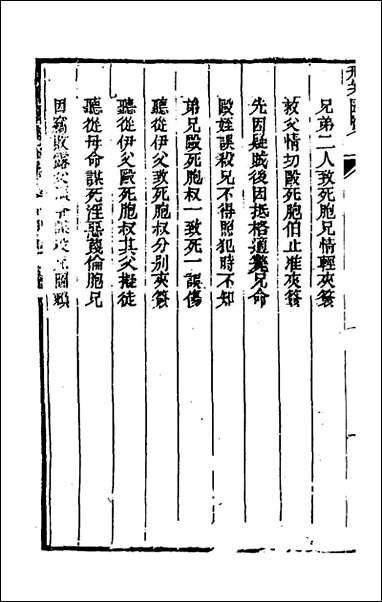 刑案匯覽
兄弟二人致死胞兄情輕夾簽
救父情切毆死胞伯止准夾簽
先因疑賊後因抵格適斃兄命
毆姪誤殺兄不得照犯時不知
弟兄毆死胞叔一致死一誤傷
聽從伊父致死胞叔分別夾簽
聽從伊父毆死胞叔其父擬徒
聽從母命謀死淫惡蔑倫胞兄
因竊敗露父